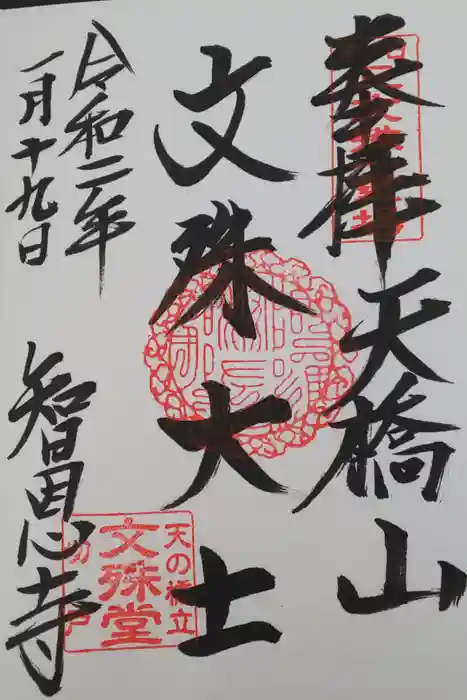 奉拝 天橋山
文殊大士
令和二年
一月十九日
智恩寺
天の橋立
文殊堂
切戸